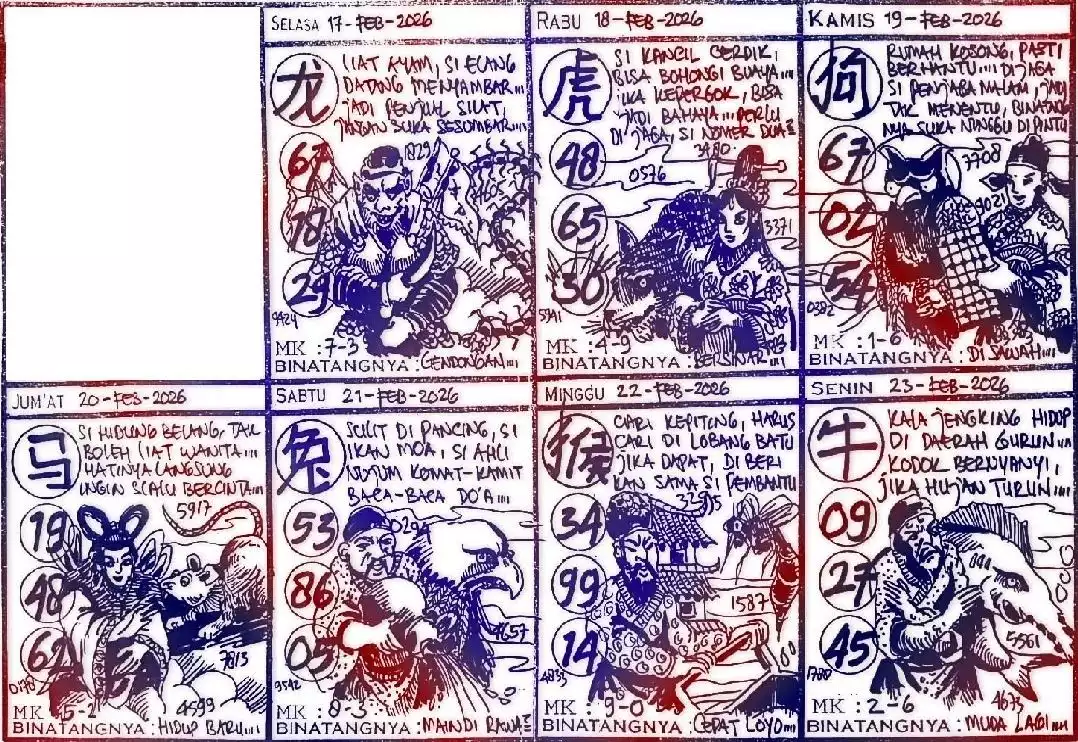 SELASA 17-FEB-2026
龙
LIAT AYAM, SI ELANG
DATANG MENYAMBAR....
JADI PENJUAL SILAT,
JANGAN SUKA SESOMBAR....
67
18
29
1829
9424
MK : 7-3
BINATANGNYA : GENDONGAN....
RABU 18-FEB-2026
虎
SI KANCIL CERDIK,
BISA BOHONGI BUAYA....
JIKA KEPERGOK, BISA
JADI BAHAYA.... PERLU
DI JAGA, SI NOMER DUA
48
65
30
3480
0576
3371
5941
MK : 4-9
BINATANGNYA : BERSINAR....
KAMIS 19-FEB-2026
狗
RUMAH KOSONG, PASTI
BERHANTU.... DI JAGA
SI PENJAGA MALAM, JADI
TAK MENENTU, BINATANG
NYA SUKA NUNGGU DI PINTU
67
02
54
7708
9021
0382
MK : 1-6
BINATANGNYA : DI SAWAH....
JUM'AT 20-FEB-2026
马
SI HIDUNG BELANG, TAK
BOLEH LIAT WANITA....
HATINYA LANGSUNG
INGIN SLALU BERCINTA....
5917
19
48
62
7813
4599
MK : 5-2
BINATANGNYA : HIDUP BARU....
SABTU 21-FEB-2026
兔
SULIT DI PANCING, SI
IKAN MOA, SI AHLI
NUJUM KOMAT-KAMIT
BACA-BACA DO'A....
53
86
05
0294
4657
9542
MK : 8-3
BINATANGNYA : MANDI RAWA
MINGGU 22-FEB-2026
猴
CARI KEPITING, HARUS
CARI DI LOBANG BATU
JIKA DAPAT, DI BERI
KAN SAMA SI PEMBANTU
34
99
14
1587
4833
MK : 9-0
BINATANGNYA : CEPAT LOYO....
SENIN 23-FEB-2026
牛
KALA JENGKING HIDUP
DI DAERAH GURUN....
KODOK BERNYANYI,
JIKA HUJAN TURUN....
09
27
45
5561
4673
MK : 2-6
BINATANGNYA : MUDA LAGI....